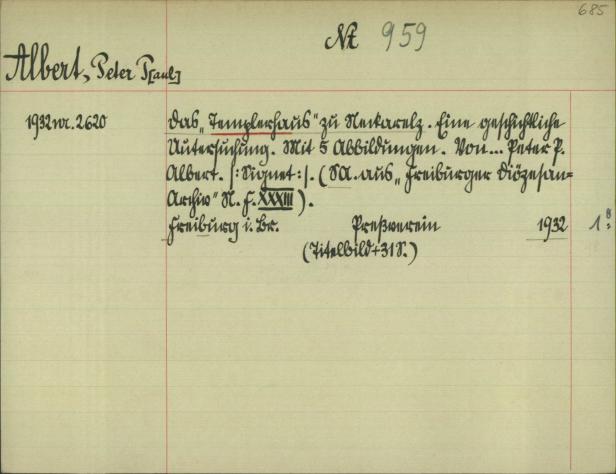 685
Nt 959
Albert, Peter P[aul]
1932 nr. 2620
Das „Templerhaus" zu Neckarelz. Eine geschichtliche
Untersuchung. Mit 5 Abbildungen. Von... Peter P.
Albert. |: Signet :|. (SA. aus „Freiburger Diözesan=
Archiv" N. F. XXXIII).
Freiburg i. Br. Preßverein 1932 1 8°
(Titelbild+31 S.)